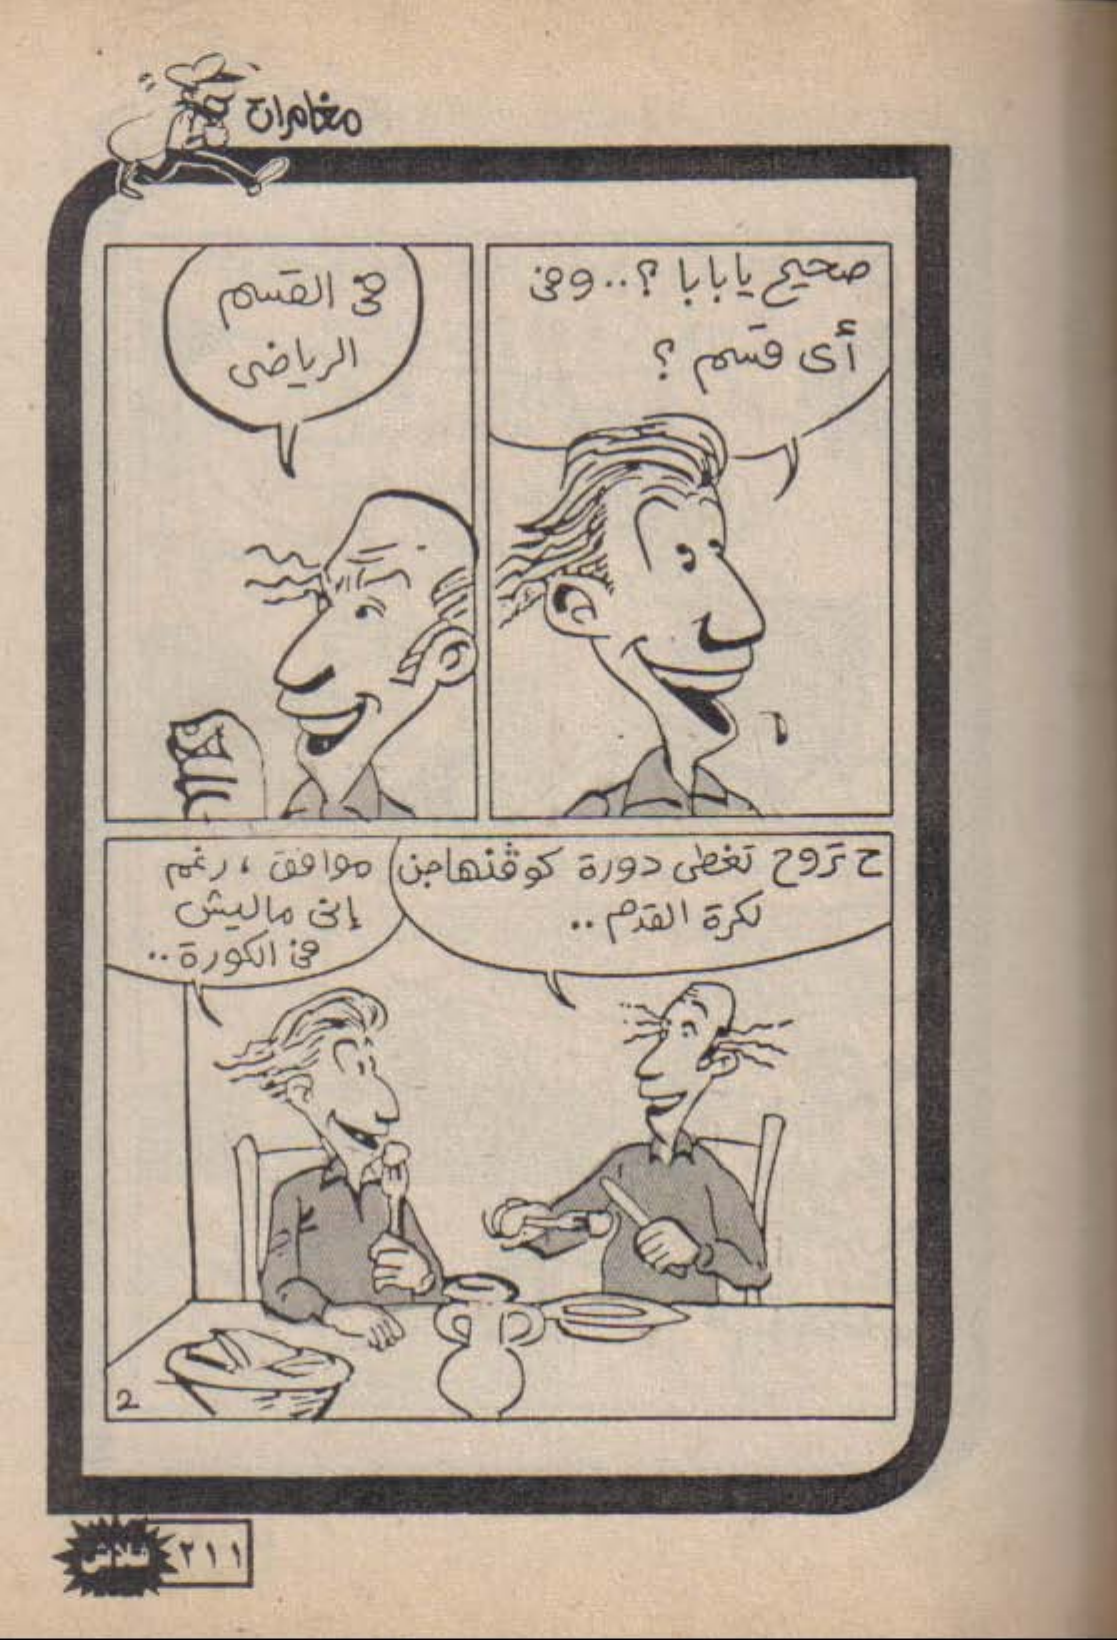 مغامرات
صحيح يا بابا ؟.. وفى
أى قسم ؟
فى القسم
الرياضى
ح تروح تغطى دورة كوڤنهاجن
لكرة القدم ..
موافق ، رغم
إنى ماليش
فى الكورة ..
2
٢١١
فلاش